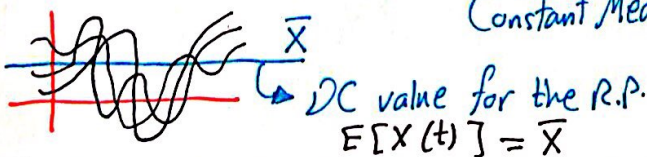 Constant Mea
X̄
DC value for the R.P.
E[X(t)] = X̄